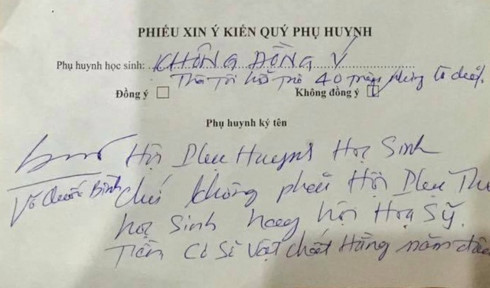 PHIẾU XIN Ý KIẾN QUÝ PHỤ HUYNH
Phụ huynh học sinh: KHÔNG ĐỒNG Ý
hỗ trợ 40
Đồng ý Không đồng ý
Phụ huynh ký tên
Hội Phụ Huynh Học Sinh
chứ không phải Hội Phụ Thu
Học Sinh hay hội Họa Sỹ.
Tiền Cơ Sở Vật chất Hằng năm đâu